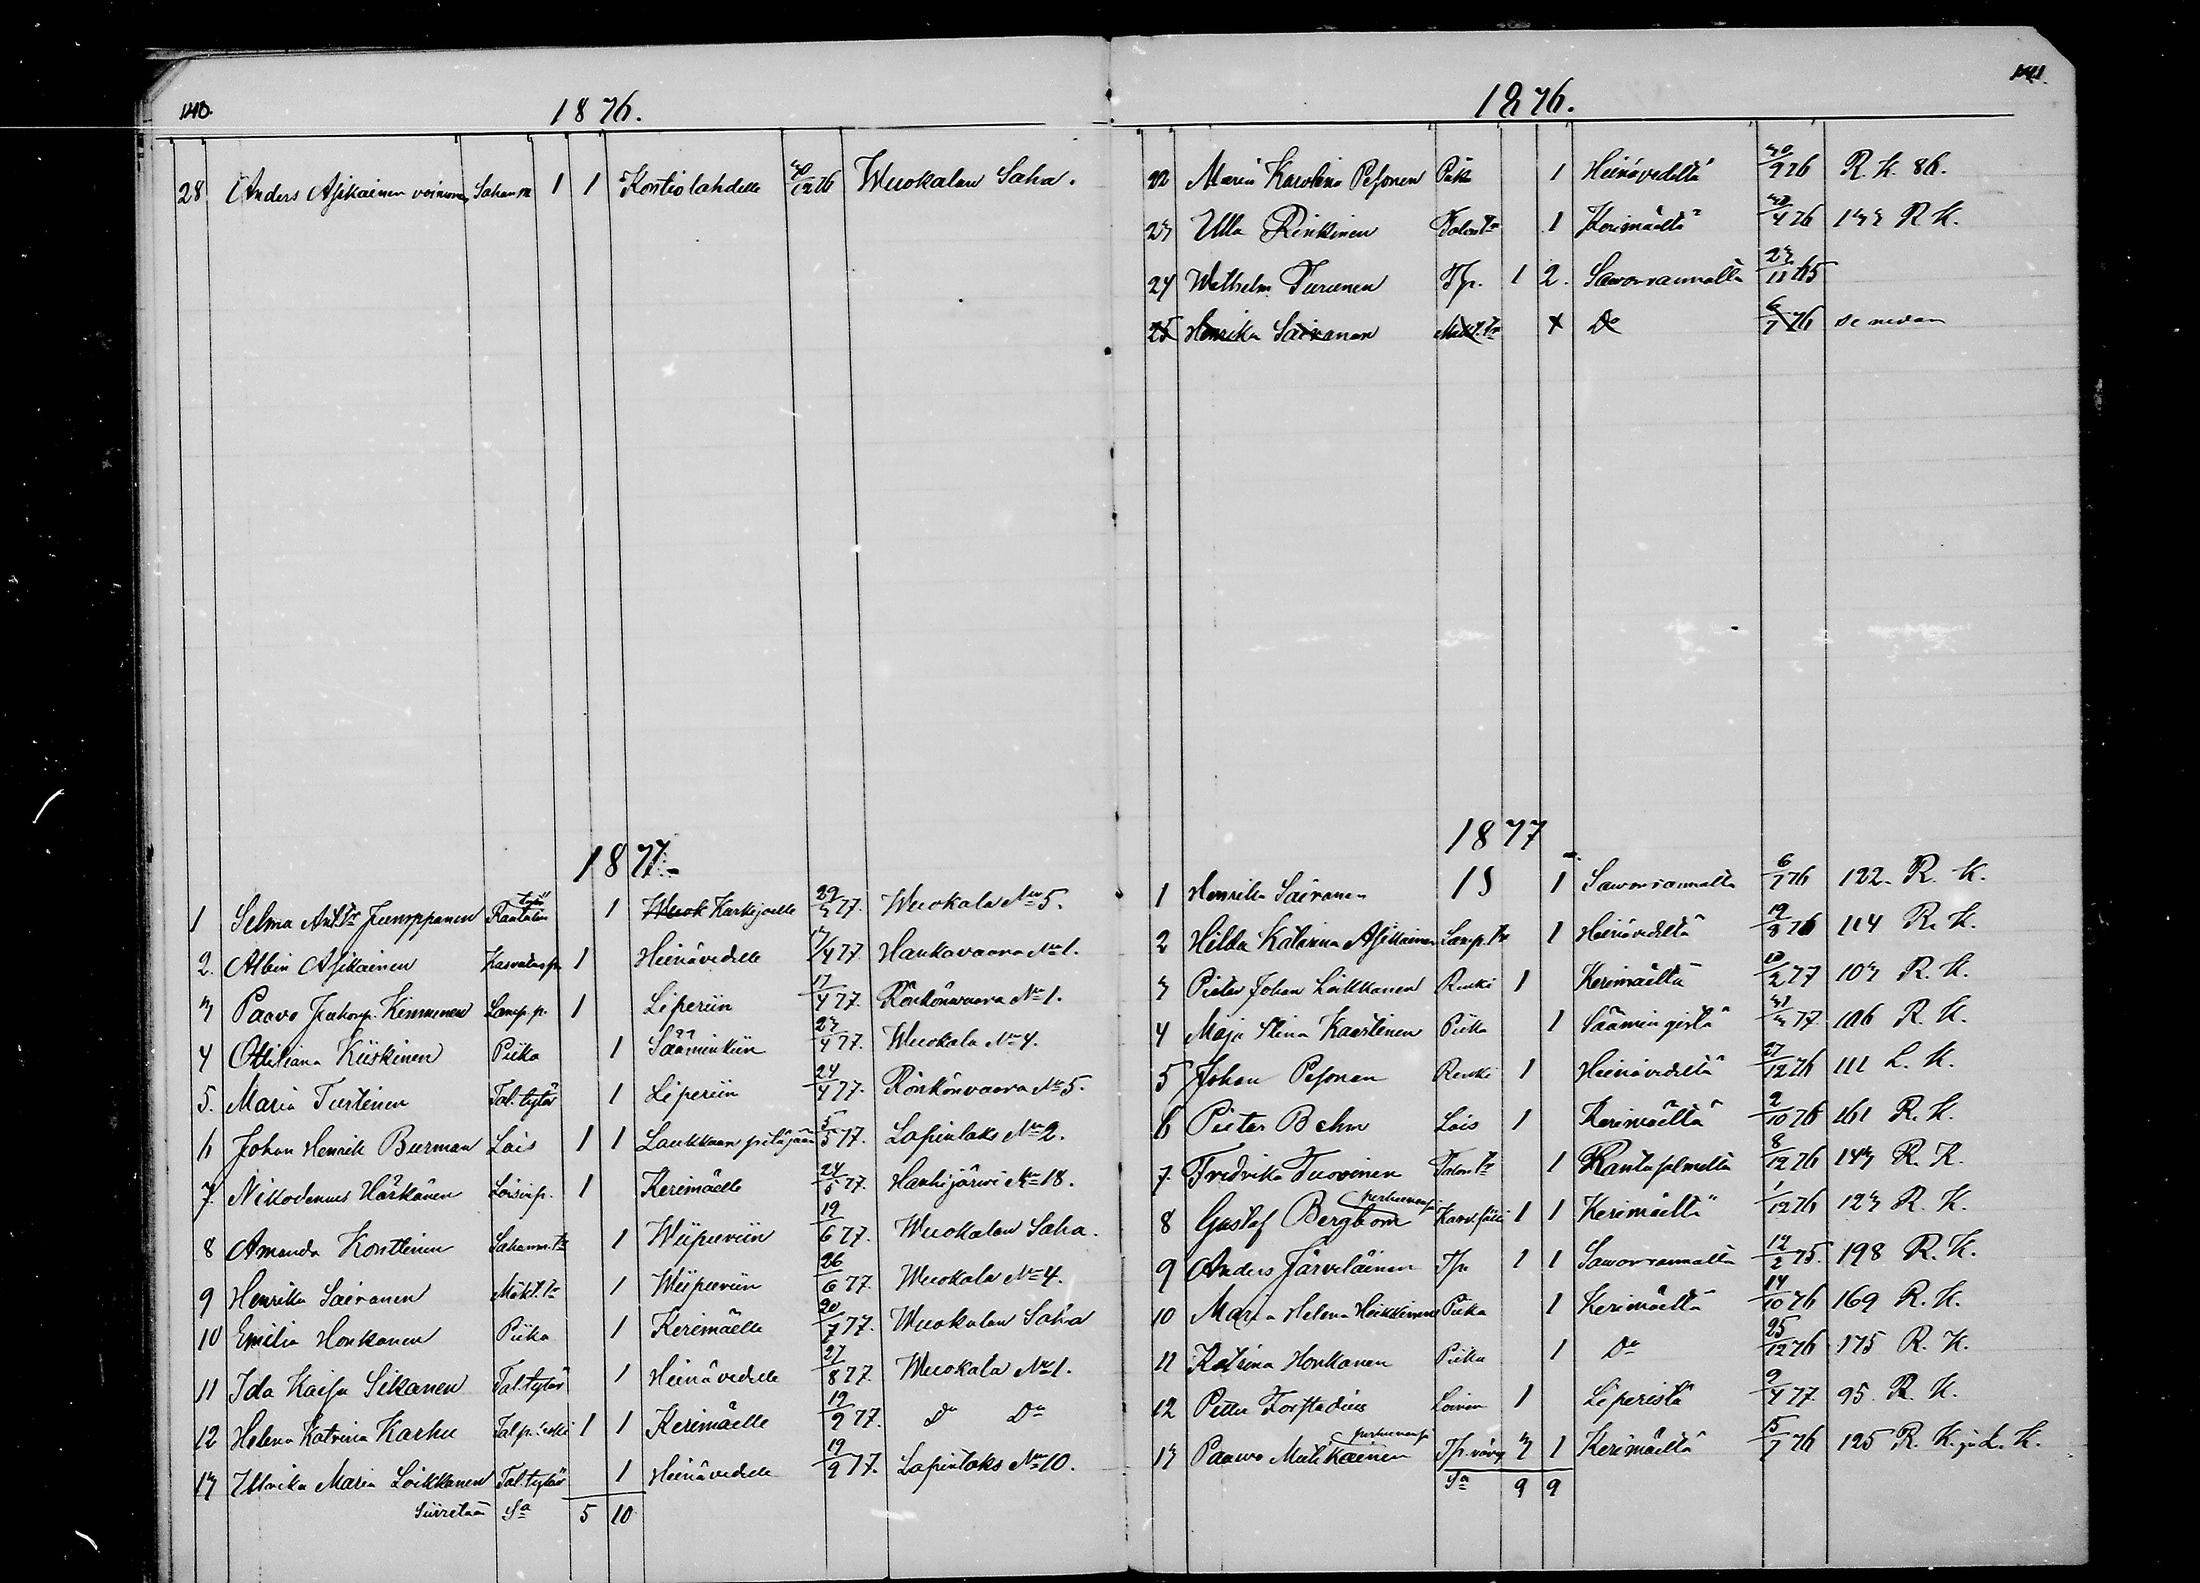 140.
1876.
28 Anders Asikainen vaimon, Sahan m 1 1 Kontiolahdelle 30/12 76 Wuokalan Saha.
1877.-
1 Selma Antt Tr Jumppanen Rantalin tytär 1 Karkjoelle 22/3 77. Wuokala No 5.
2. Albin Asikainen Kasvatus p. 1 Heinävedelle 3/4 77. Hankavaara No 1.
3 Paavo Juhonp. Kinnunen Lamp. p. 1 Liperiin 17/4 77. Rönkönvaara No 1.
4 Ottiliana Kiiskinen Piika 1 Sääminkiin 23/4 77. Wuokala No 4.
5. Maria Turtinen Tal. tytär 1 Liperiin 24/4 77. Rönkönvaara No 5.
6 Johan Henrik Burman Lois 1 1 Laukkaan pitäjään 5/5 77. Lapinlaks No 2.
7. Nikodemus Härkönen Loisinp. 1 Kerimäelle 24/5 77. Hanhijärwi No 18.
8 Amanda Konttinen Sahanm. Tr 1 Wiipuriin 19/6 77. Wuokalan Saha.
9 Henrika Sairanen Mökl. Tr 1 Wiipuriin 26/6 77. Wuokala No 4.
10 Emilia Honkanen Piika 1 Kerimäelle 20/7 77. Wuokalan Saha
11 Ida Kaisa Sikanen Tal. tytär 1 Heinävedelle 27/8 77. Wuokala No 1.
12 Helena Katrina Karhu Tal. p. leski 1 1 Kerimäelle 19/9 77. Do Do
13 Ulrika Maria Loikkanen Tal. tytär 1 Heinävedelle 19/9 77. Lapinlaks No 10.
Siirretään Sa 5 10
141.
1876.
22 Maria Karolina Pesonen Piika 1 Heinävedeltä 30/9 76 R. K. 86.
23 Ulla Rinkinen Talon Tr 1 Kerimäeltä 30/4 76 133 R. K.
24 Wilhelm Turunen Tp. 1 2. Sawonrannalta 23/11 65
25 Henrika Sairanen Mökl. Tr 1 Do 6/7 76 se nedan
1877
1 Henrika Sairanen 1 Sawonrannalta 6/7 76 122. R. K.
2 Hilda Katarina Asikainen Lamp. Tr 1 Heinävedeltä 19/3 76 114 R. K.
3 Pieter Johan Loikkanen Renki 1 Kerimäeltä 10/2 77 103 R. K.
4 Maja Stina Kaartinen Piika 1 Säämingistä 31/3 77. 106 R. K.
5 Johan Pesonen Renki 1 Heinävedeltä 27/12 76 111 L. K.
6 Pieter Behm Lois 1 Kerimäeltä 2/10 76 161 R. K.
7. Fredrika Tuovinen Talon Tr 1 Rantasalmelta 8/12 76 143 R. K.
8 Gustaf Bergbom perheensä 1 1 Kerimäeltä 1/12 76 123 R. K.
9 Anders Järveläinen Tp. 1 1 Sawonrannalta 12/2 75. 198 R. K.
10 Maria Helena Heikkinen Piika 1 Kerimäeltä 14/10 76 169 R. K.
11 Katrina Honkanen Piika 1 Do 25/12 76 175 R. K.
12 Petter Forstadius Loinen 1 Liperistä 2/4 77. 95. R. K.
13 Paawo Mutikainen perheensä Tp. vävy 3 1 Kerimäeltä 5/7 76 125 R. K. ja L. K.
Sa 9 9